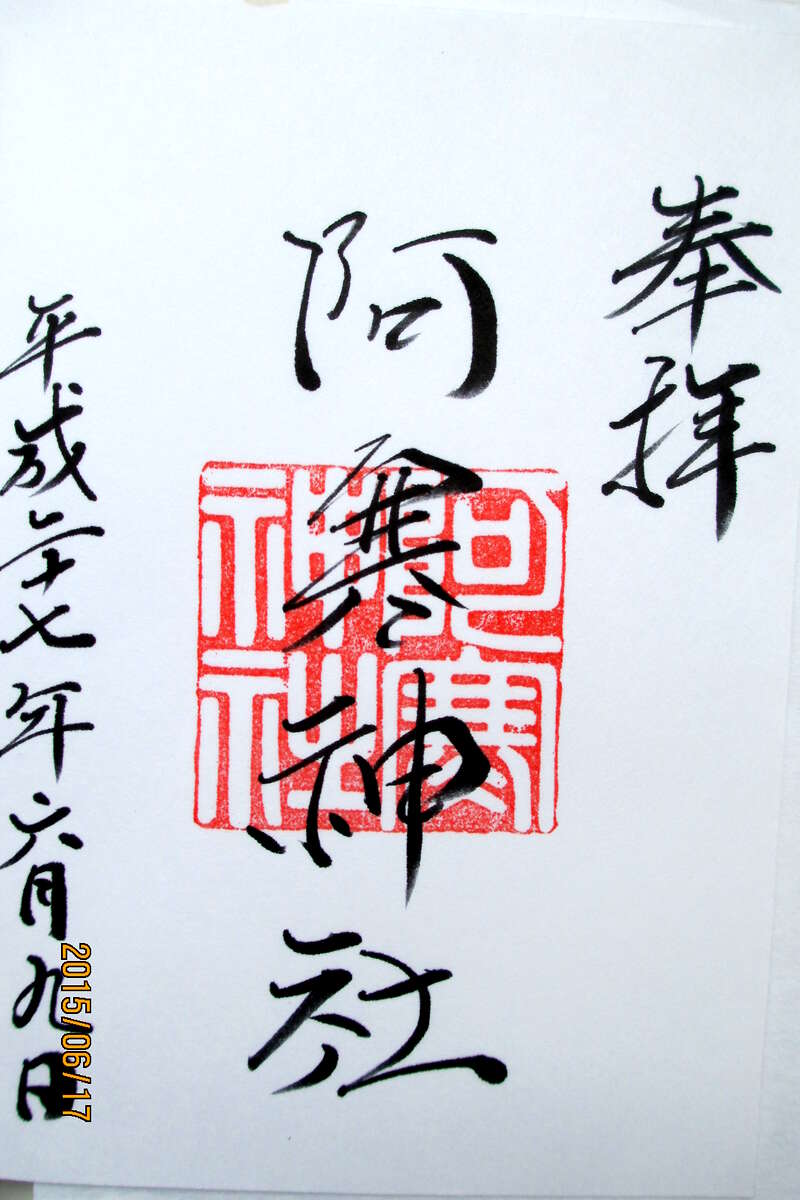 奉拝
阿寒神社
阿寒神社
平成二十七年六月九日
2015/06/17